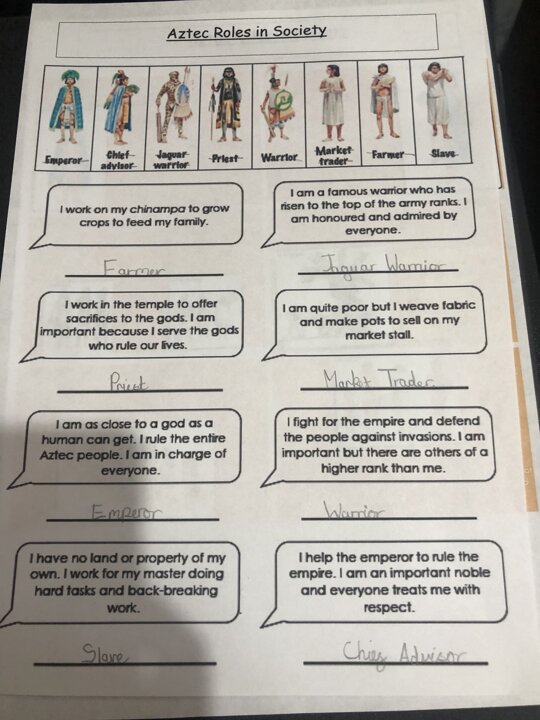 Aztec Roles in Society
Emperor Chief advisor Jaguar warrior Priest Warrior Market trader Farmer Slave
I work on my chinampa to grow
crops to feed my family.
Farmer
I am a famous warrior who has
risen to the top of the army ranks. I
am honoured and admired by
everyone.
Jaguar Warrior
I work in the temple to offer
sacrifices to the gods. I am
important because I serve the gods
who rule our lives.
Priest
I am quite poor but I weave fabric
and make pots to sell on my
market stall.
Market Trader
I am as close to a god as a
human can get. I rule the entire
Aztec people. I am in charge of
everyone.
Emperor
I fight for the empire and defend
the people against invasions. I am
important but there are others of a
higher rank than me.
Warrior
I have no land or property of my
own. I work for my master doing
hard tasks and back-breaking
work.
Slave
I help the emperor to rule the
empire. I am an important noble
and everyone treats me with
respect.
Chief Advisor